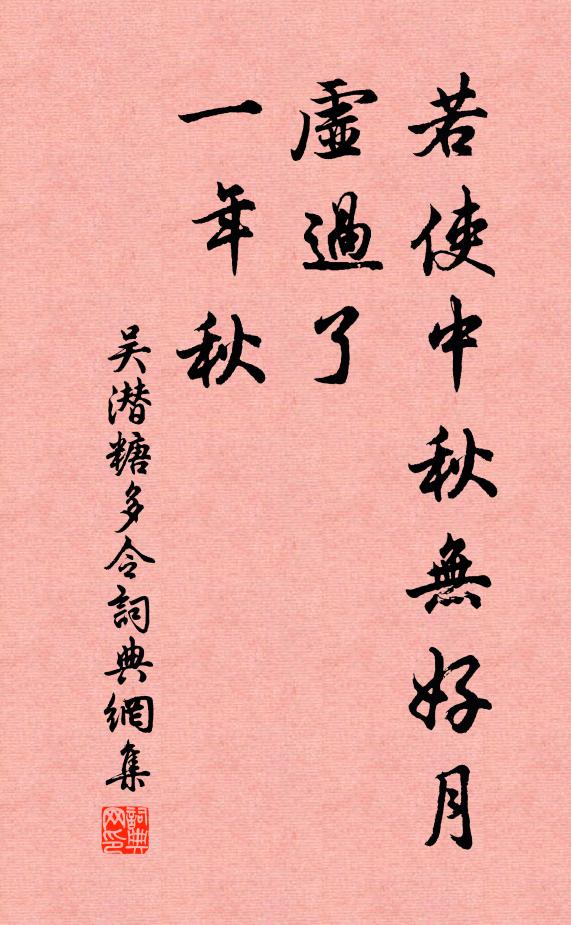 若使中秋無好月
虛過了
一年秋
吴潛糖多令詞典網集
詞典
网印